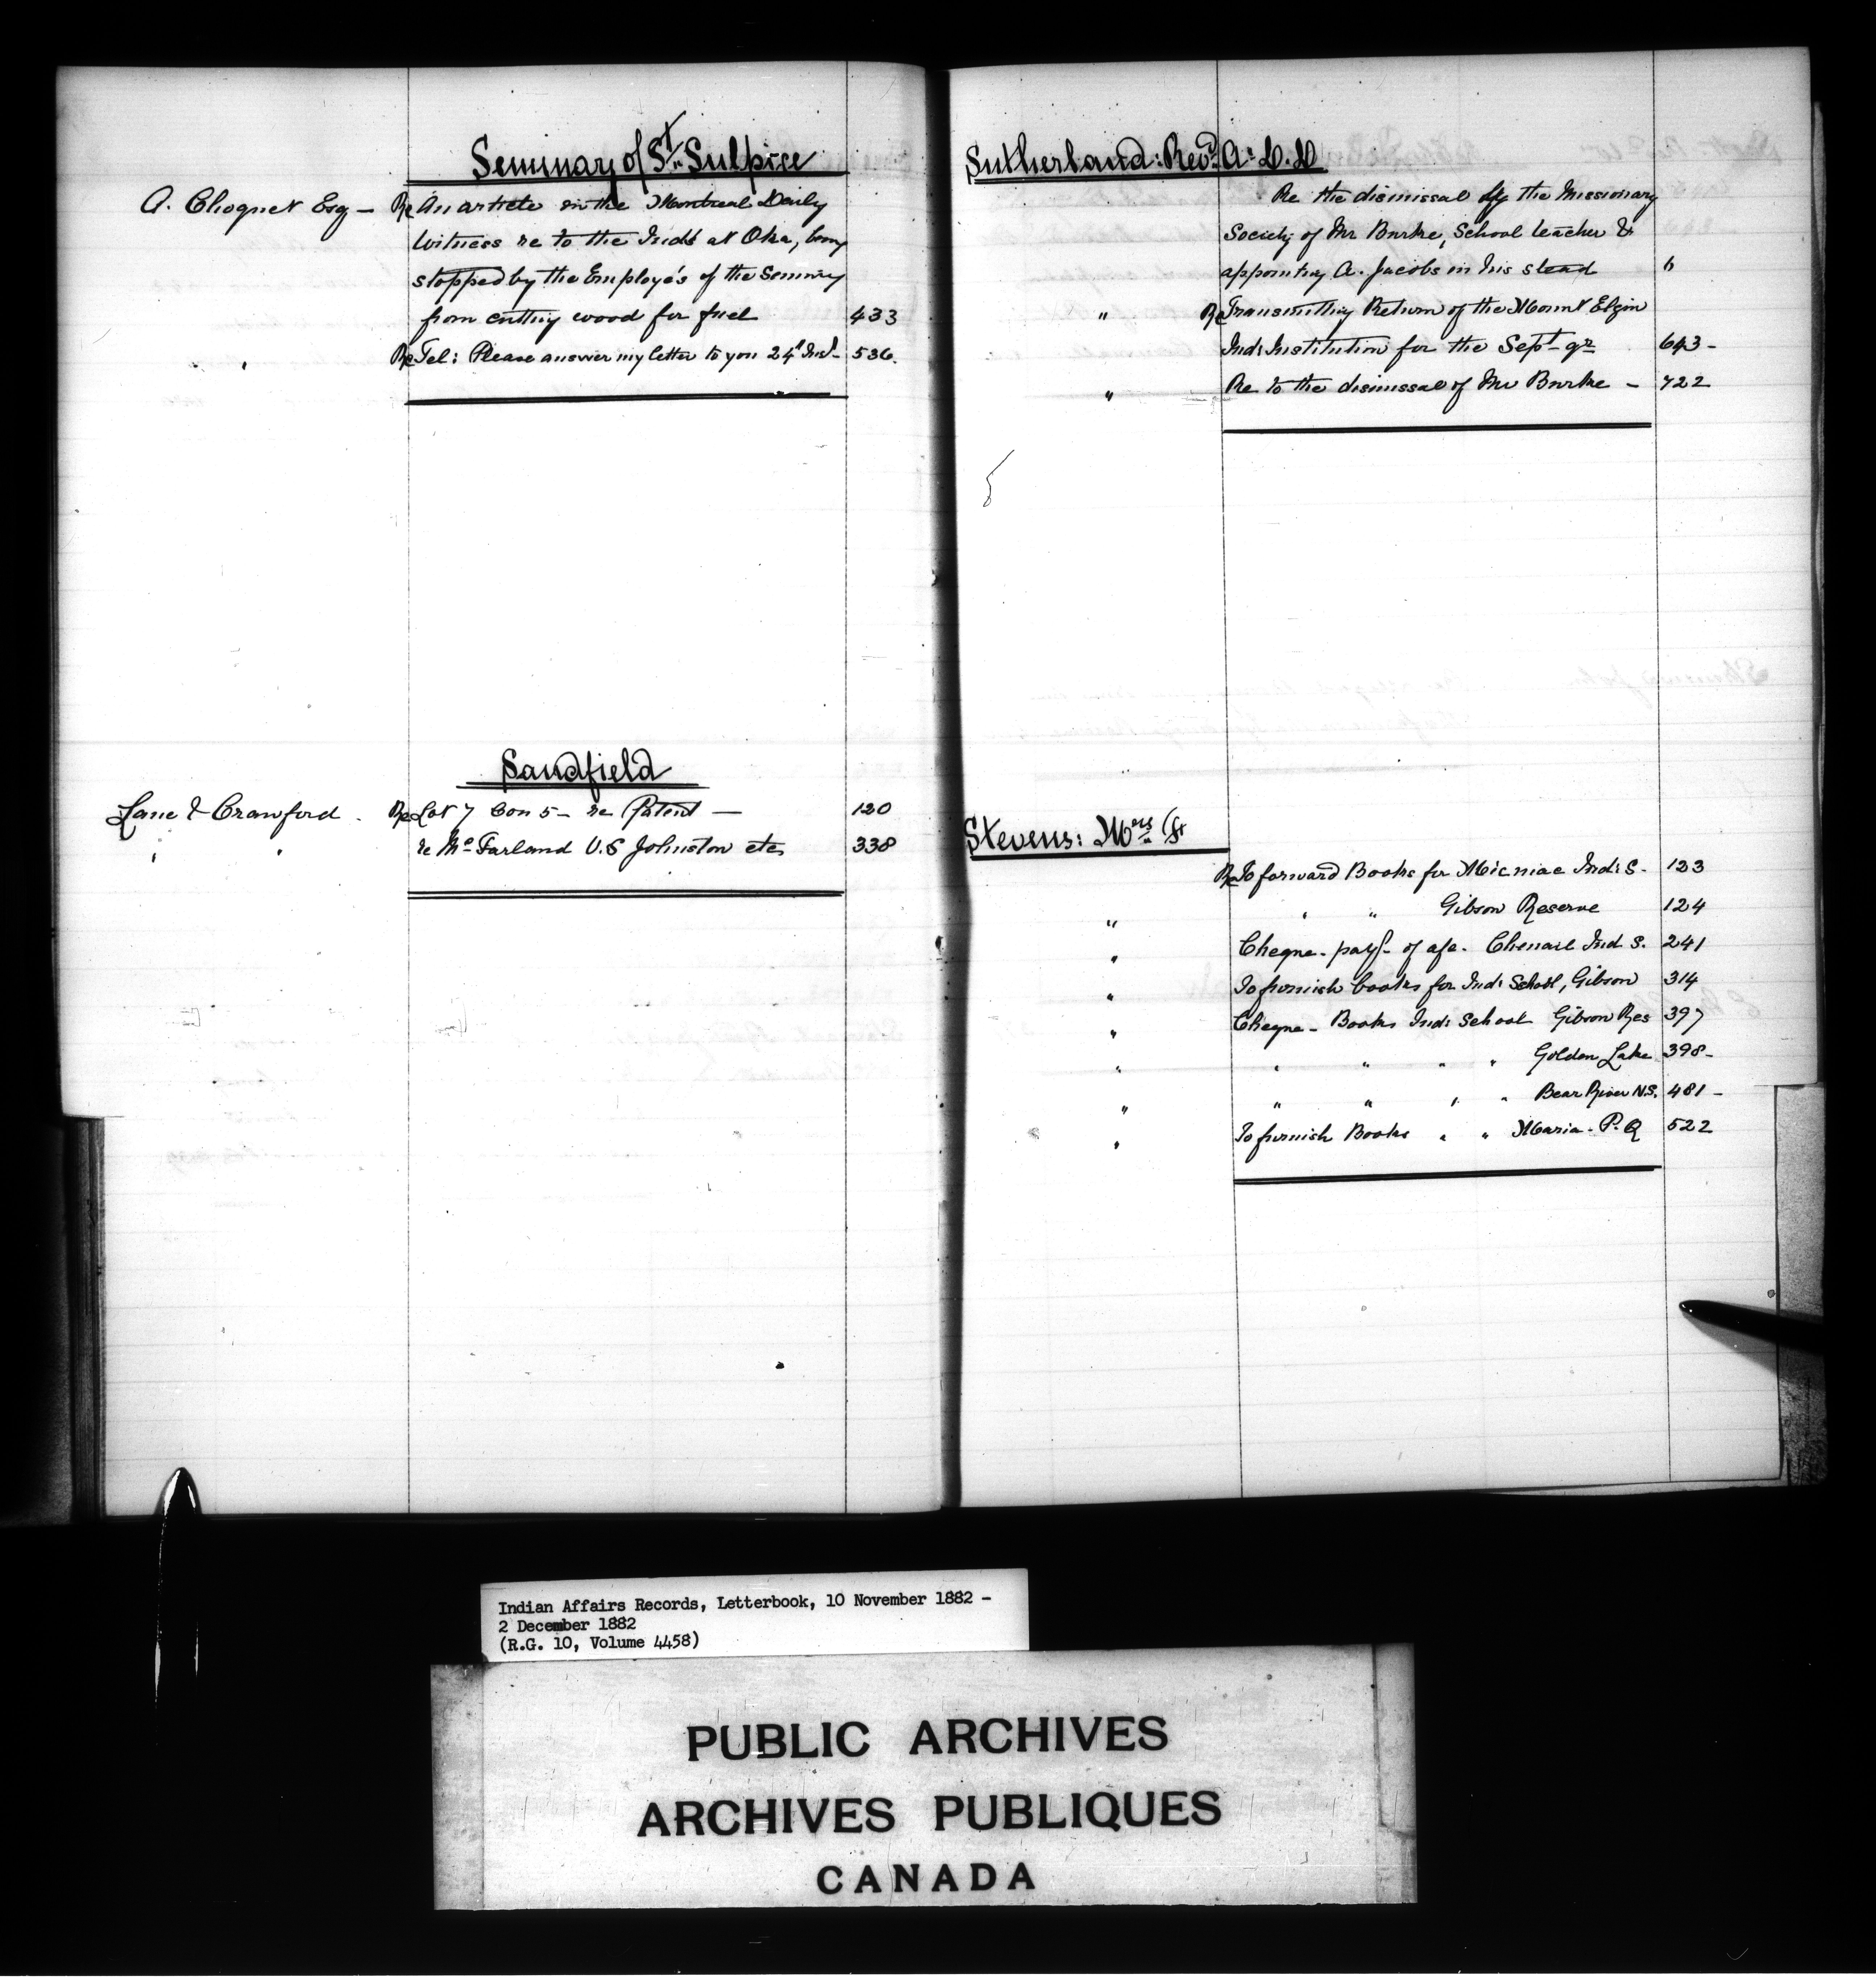 Seminary of St. Sulpice
A. Choquet Esq — Re An article in the Montreal Daily
Witness re to the Inds at Oka, being
stopped by the Employé's of the Seminary
from cutting wood for fuel 433
" Re Tel: Please answer my letter to you 24th Inst - 536.
Sandfield
Lane & Crawford. Re Lot 7 Con 5 - re Patent — 120
" " re McFarland V.S Johnston etc 338
Sutherland: Revd. A. D.D
Re the dismissal by the Missionary
Society of Mr Burke, School teacher &
appointing A. Jacobs in his stead 6
" Re Transmitting Return of the Mount Elgin
Ind: Institution for the Sept qr 643 -
" Re to the dismissal of Mr Burke - 722
Stevens: Mrs
Re To forward Books for Micmac Ind: S. 123
" " " Gibson Reserve 124
" Cheque - payt of a/c. Chenail Ind S. 241
" To furnish books for Ind: School, Gibson 314
" Cheque - Books Ind: School Gibson Res 397
" " " " " Golden Lake 398 -
" " " " " Bear River N.S. 481 -
" To furnish Books " " Maria - P.Q 522
Indian Affairs Records, Letterbook, 10 November 1882 -
2 December 1882
(R.G. 10, Volume 4458)
PUBLIC ARCHIVES
ARCHIVES PUBLIQUES
CANADA